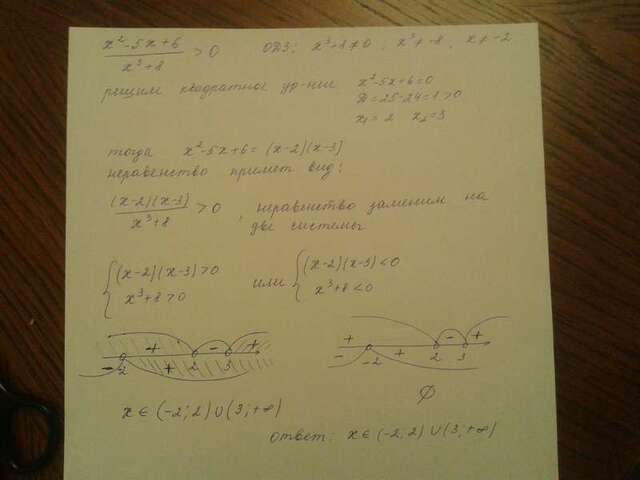 x² - 5x + 6 / x³ + 8 > 0   ОДЗ: x³ + 8 ≠ 0 ; x³ ≠ -8 , x ≠ -2
решим квадратное ур-ние x² - 5x + 6 = 0
D = 25 - 24 = 1 > 0
x₁ = 2 x₂ = 3
тогда x² - 5x + 6 = (x-2)(x-3)
неравенство примет вид:
(x-2)(x-3) / x³ + 8 > 0 , неравенство заменим на
две системы
{ (x-2)(x-3) > 0
x³ + 8 > 0
или { (x-2)(x-3) < 0
x³ + 8 < 0
+ - +
- -2 + 2 3
+ - +
- -2 + 2 3
x ∈ (-2; 2) ∪ (3; +∞)
∅
ответ: x ∈ (-2; 2) ∪ (3; +∞)